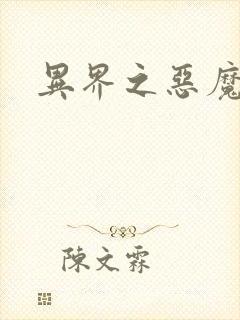 異界之惡魔
陳文霖